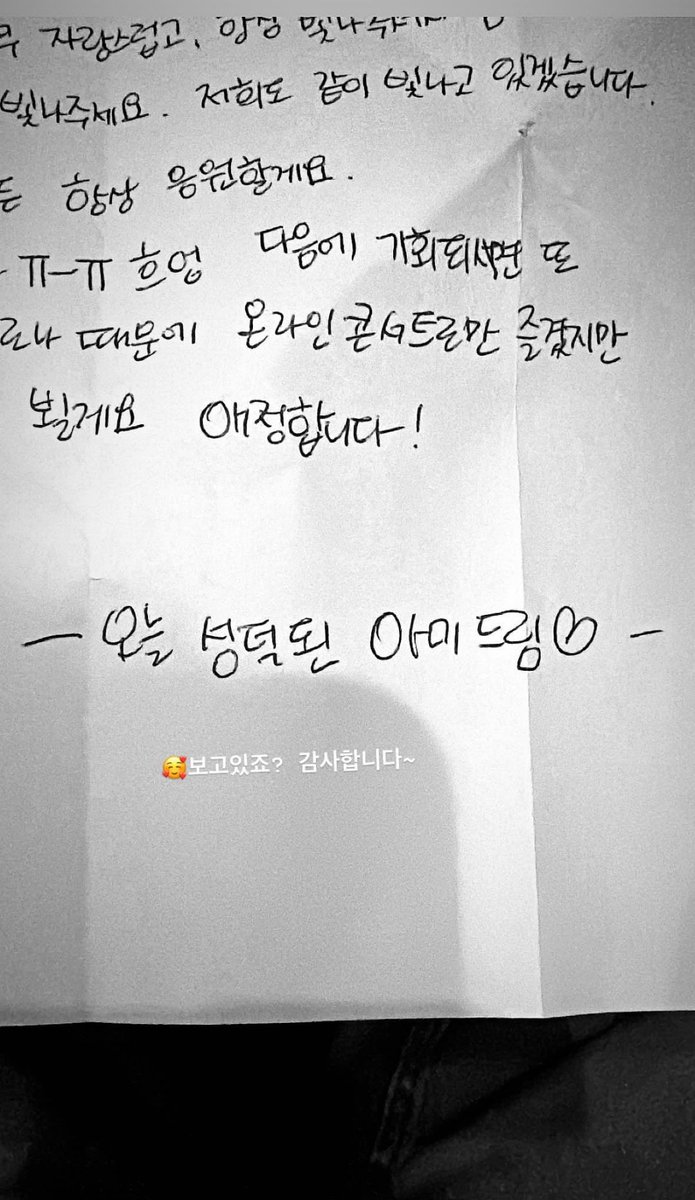 자랑스럽고, 항상 빛나주셔서
빛나주세요. 저희도 같이 빛나고 있겠습니다.
든 항상 응원할게요.
ㅠ-ㅠ 흐엉 다음에 기회되시면 또
로나 때문에 온라인 콘서트로만 즐겼지만
뵐게요 애정합니다!
- 오늘 성덕된 아미드림♡ -
🥰보고있죠? 감사합니다~